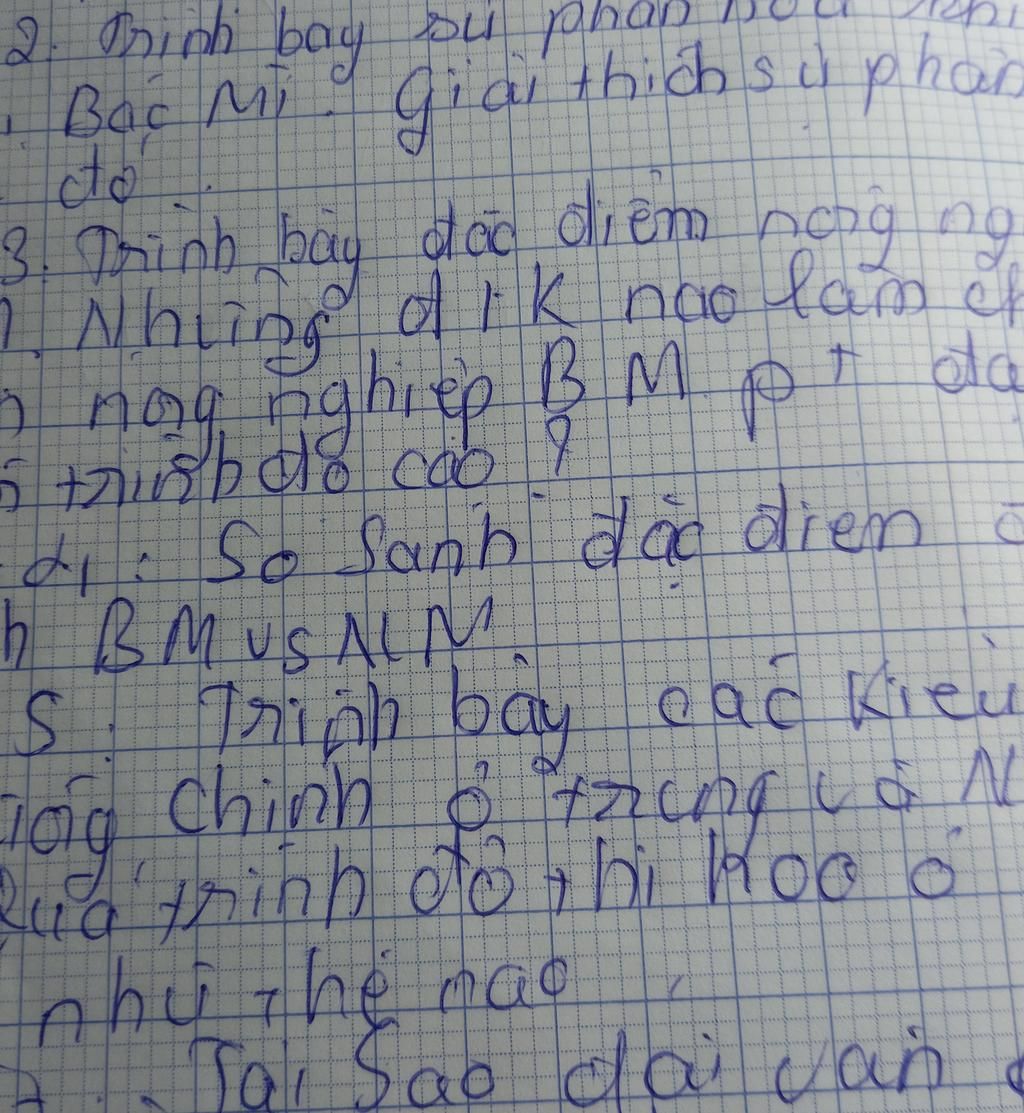 2. Trình bày sự phân hoá khí
Bắc Mĩ. Giải thích sự phân
đó.
3. Trình bày đặc điểm nông ng
Những đ/k nào làm ch
nông nghiệp BM pt đạ
trình độ cao?
So Sánh đặc điểm
h BM vs NM
5. Trình bày các kiểu
chính ở trung và N
Quá trình đô thị hoá ở
như thế nào
Tại Sao đại